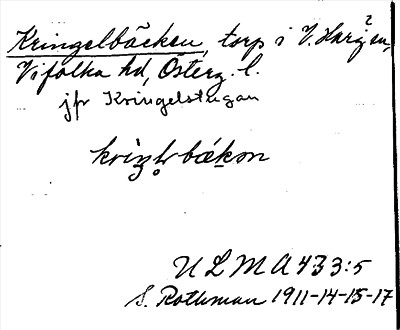 Kringelbäcken, torp i V. Harg sn,
Vifolka hd, Österg. l.
jfr Kringelstugan
bäkon
ULMA 433:5
S. Rothman 1911-14-15-17